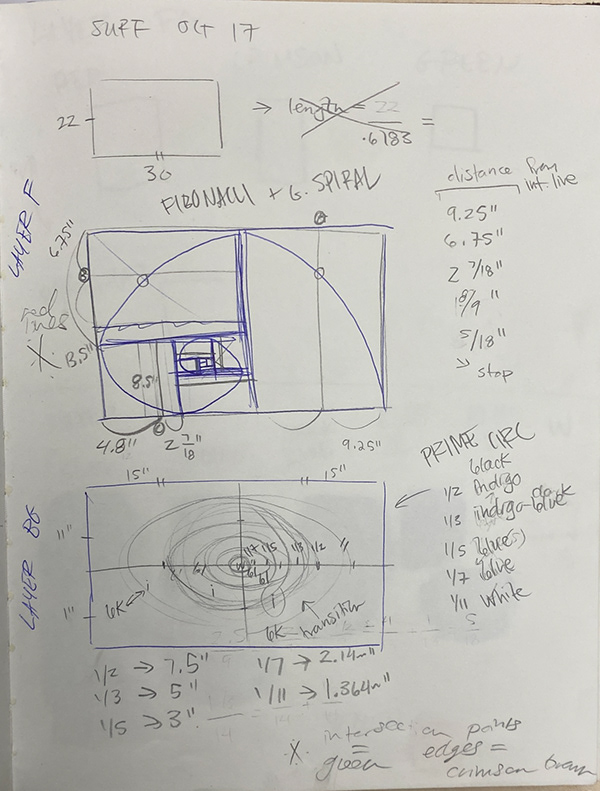 SURF OCT 17
22
30
→ length = 22
.6783 =
LAYER F
FIBONACCI + G. SPIRAL
distance from
int. line
9.25"
6.75"
2 7/18"
8/9 "
5/18"
→ stop
6.75"
red
lines
8.5"
8.5"
4.8"
2 7/18"
9.25"
LAYER BK
15"
15"
PRIME CIRC
black
1/2 Indigo
1/3 indigo-blue
1/5 blue(s)
1/7 blue
1/11 white
11"
11"
W
1/7
1/5
1/3
1/2
i
i
i
BK
BK transition
1/2 → 7.5"
1/3 → 5"
1/5 → 3"
1/7 → 2.14~"
1/11 → 1.364~"
intersection points
= green
edges =
crimson